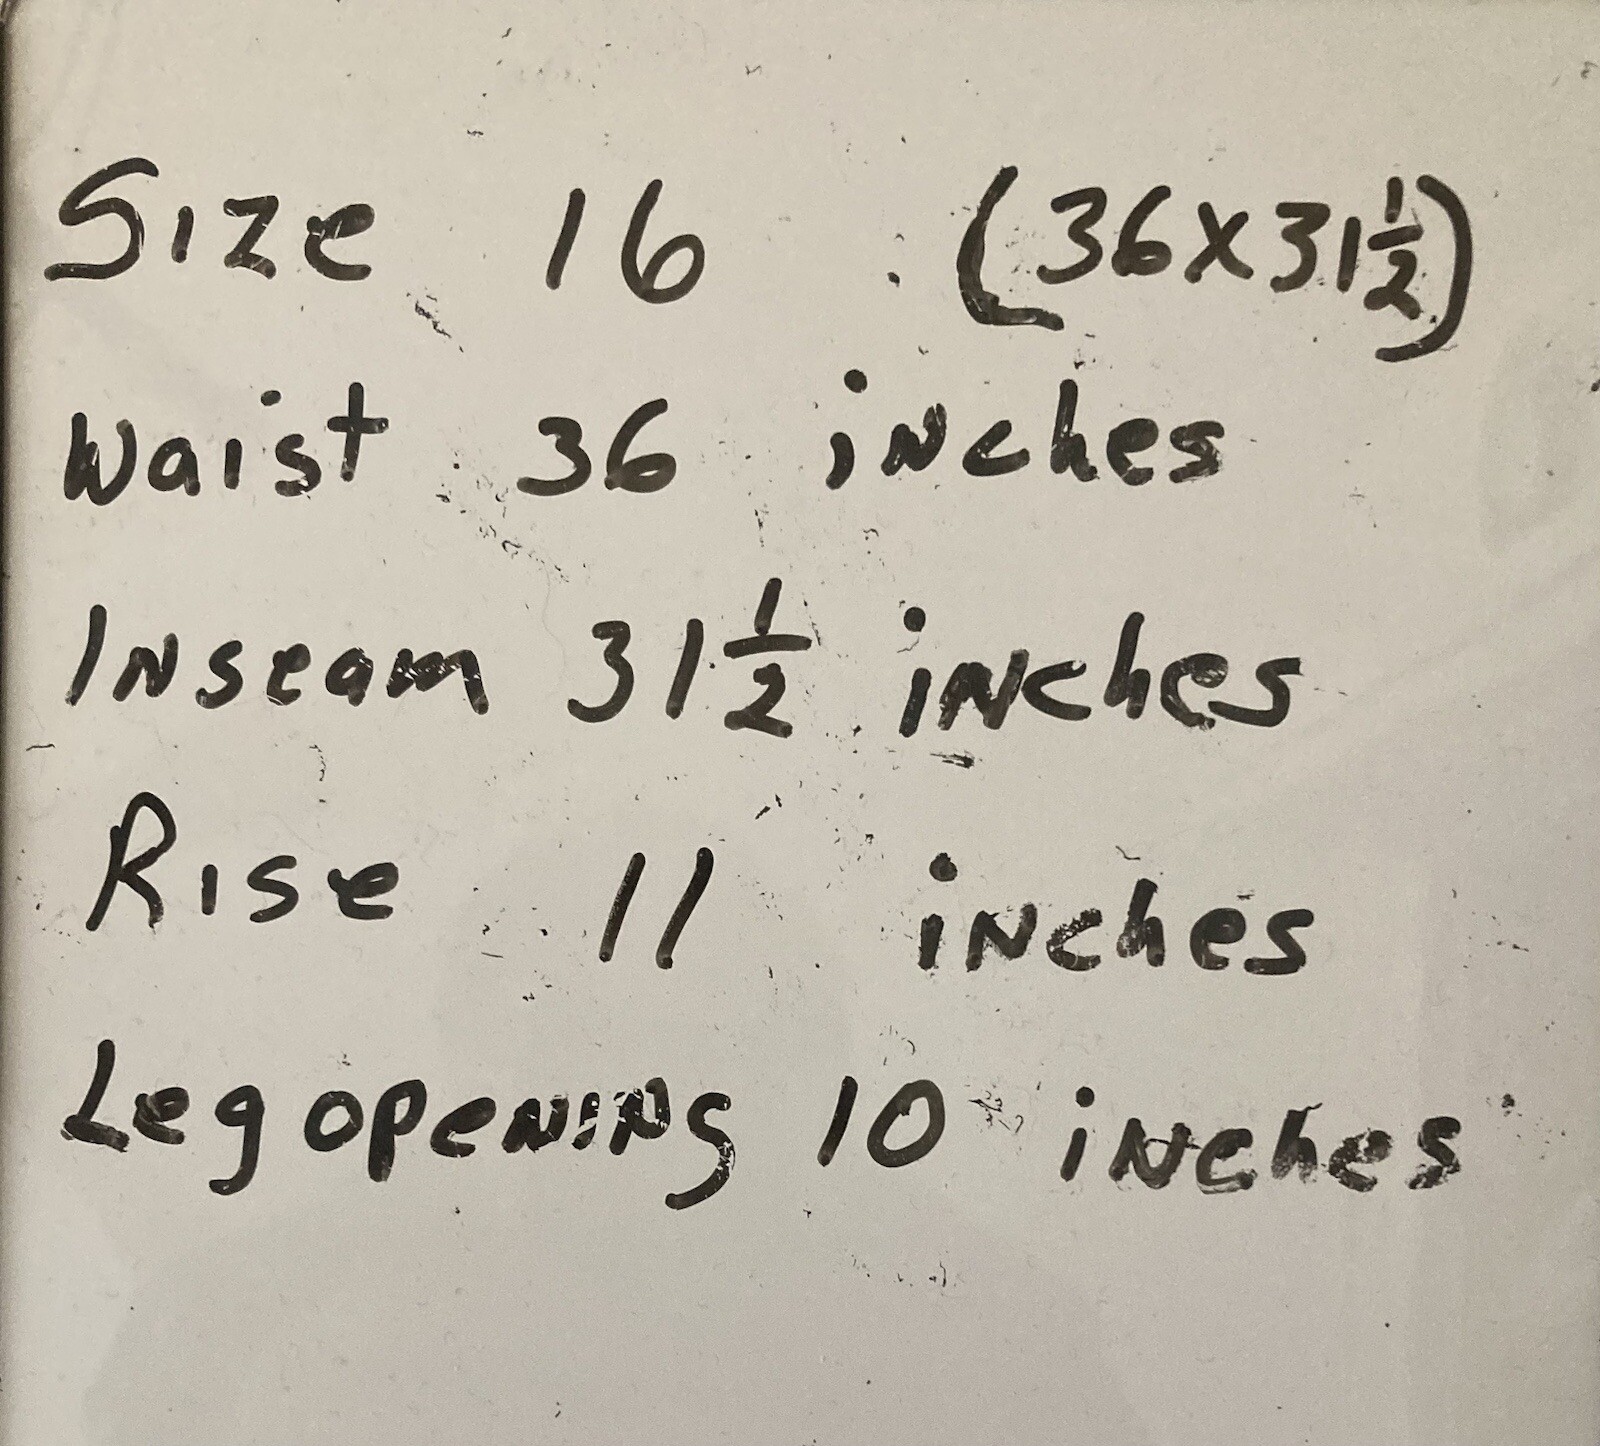 Size 16 (36x31½)
Waist 36 inches
Inseam 31½ inches
Rise 11 inches
Leg opening 10 inches